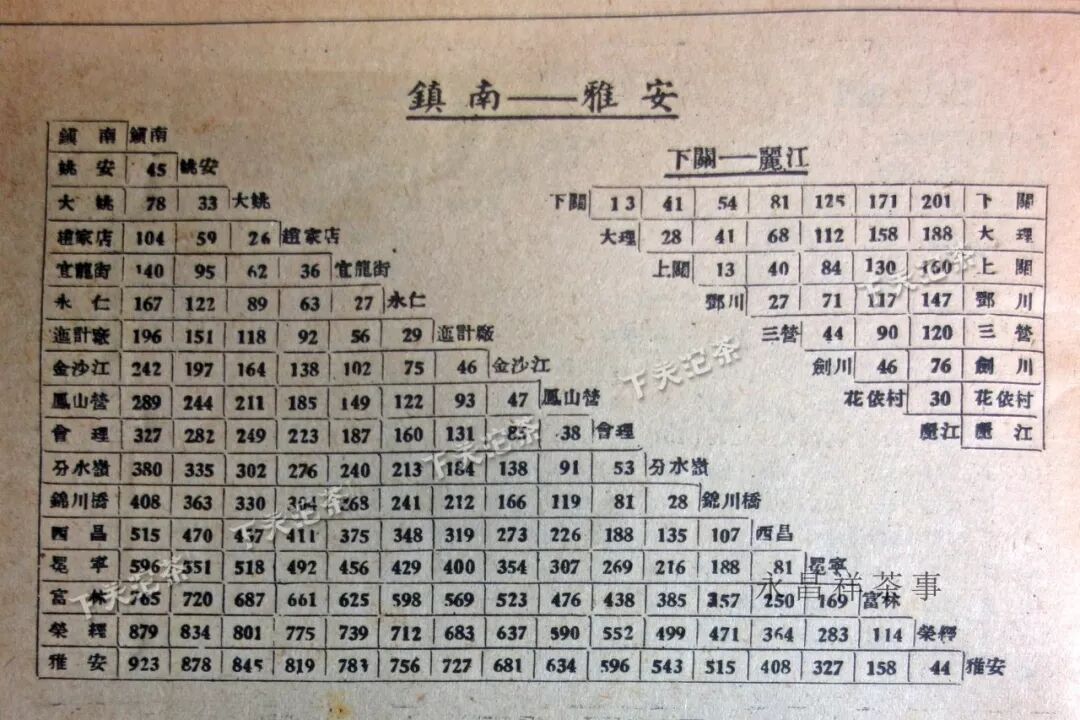 鎮南——雅安
鎮南 鎮南
姚安 45 姚安
大姚 78 33 大姚
趙家店 104 59 26 趙家店
官龍街 140 95 62 36 官龍街
永仁 167 122 89 63 27 永仁
逛計廠 196 151 118 92 56 29 逛計廠
金沙江 242 197 164 138 102 75 46 金沙江
鳳山營 289 244 211 185 149 122 93 47 鳳山營
會理 327 282 249 223 187 160 131 85 38 會理
分水嶺 380 335 302 276 240 213 184 138 91 53 分水嶺
錦川橋 408 363 330 304 268 241 212 166 119 81 28 錦川橋
西昌 515 470 437 411 375 348 319 273 226 188 135 107 西昌
冕寧 596 551 518 492 456 429 400 354 307 269 216 188 81 冕寧
富林 765 720 687 661 625 598 569 523 476 438 385 357 250 169 富林
榮經 879 834 801 775 739 712 683 637 590 552 499 471 364 283 114 榮經
雅安 923 878 845 819 783 756 727 681 634 596 543 515 408 327 158 44 雅安
下關——麗江
下關 13 41 54 81 125 171 201 下關
大理 28 41 68 112 158 188 大理
上關 13 40 84 130 160 上關
鄧川 27 71 117 147 鄧川
三營 44 90 120 三營
劍川 46 76 劍川
花依村 30 花依村
麗江 麗江
下关沱茶
下关沱茶
下关沱茶
下关沱茶
下关沱茶
永昌祥茶事